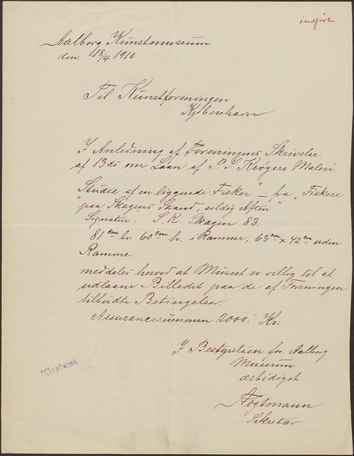 indført
Aalborg Kunstmuseum
den 15/4 1910
Til Kunstforeningen
København
I Anledning af Foreningens Skrivelse
af 13ds om Laan af P. S. Krøyers Maleri
Studie af en liggende Fisker" - fra "Fiskere
paa Skagens Strand, sildig Aften
Signatur. S. K. Skagen 83.
81 cm br. 60 cm hr. i Ramme, 63 cm x 42 cm uden
Ramme
meddeles herved at Museet er villig til at
udlaane Billedet paa de af Foreningen
tilbudte Betingelser.
Assurancesummen 2000. Kr.
I Bestyrelsen for Aalborg
Museum
ærbødigst
Sekretær